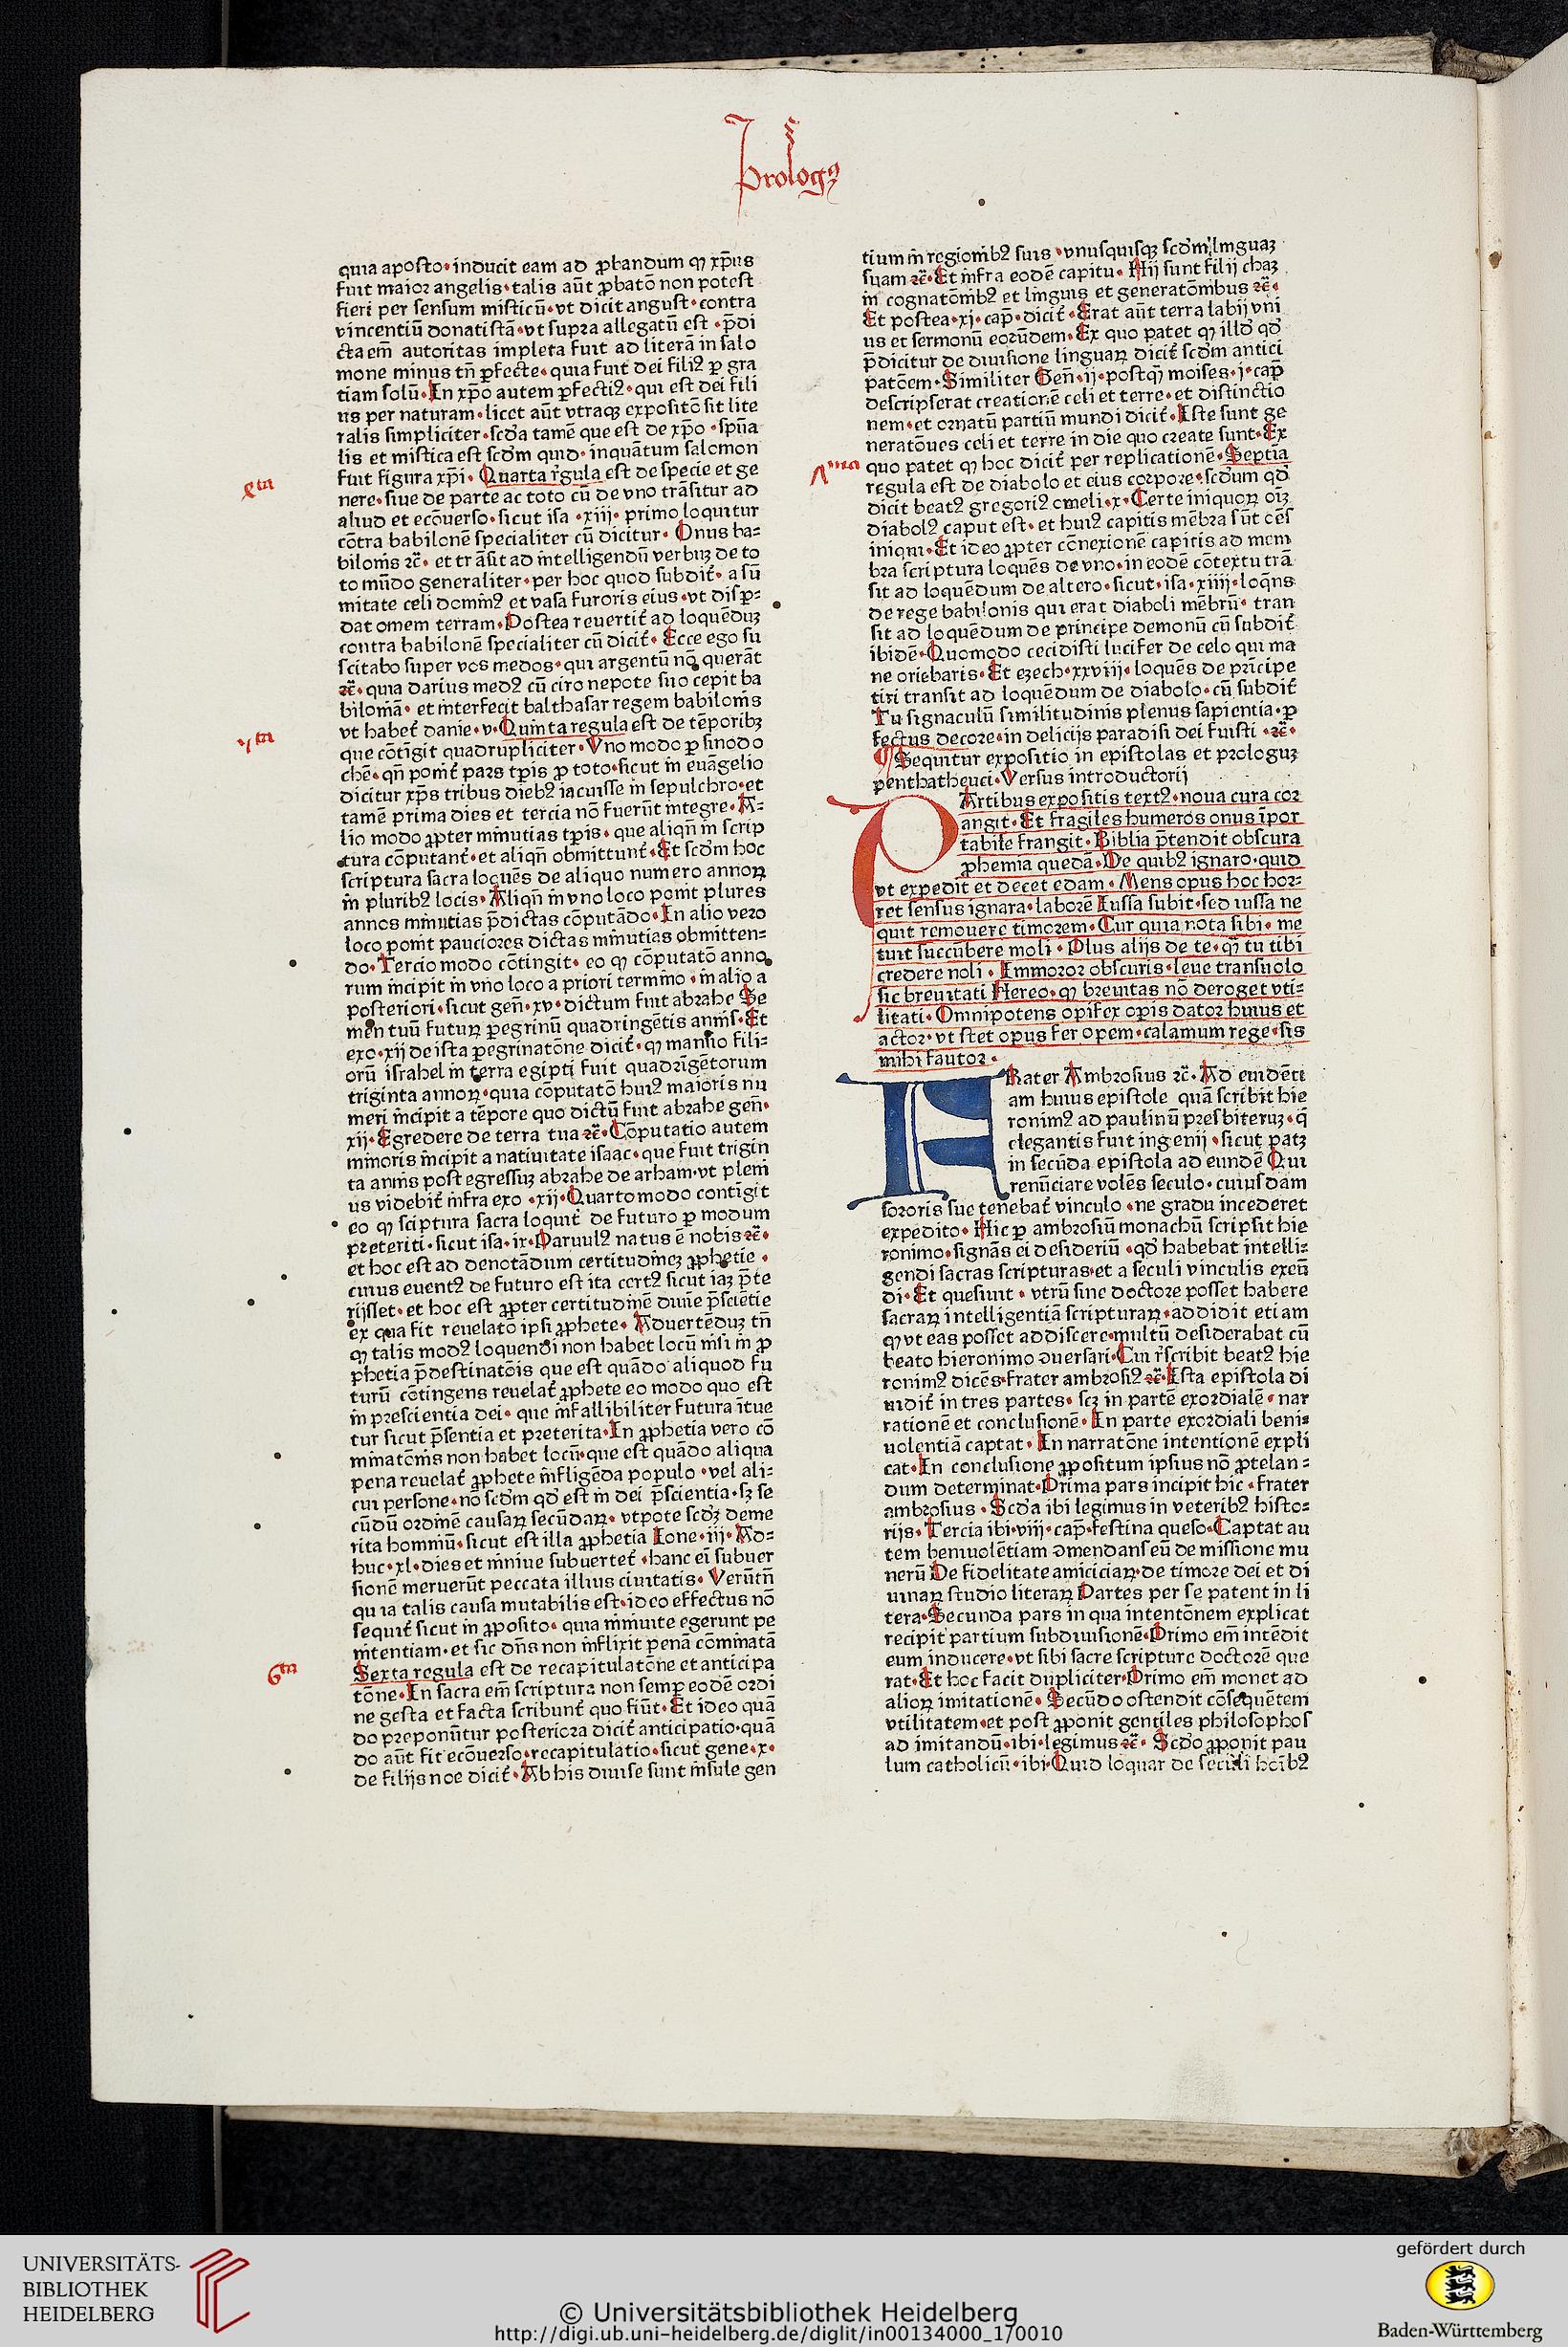 Prologꝯ
quia aposto·inducit eam ad ꝓbandum ꝙ xp̄us
fuit maior angelis·talis aūt ꝓbatō non potest
fieri per sensum misticū·vt dicit angust·contra
vincentiū donatistā·vt supra allegatū est·p̄di
cta em̄ autoritas impleta fuit ad literā in salo
mone minus tn̄ ꝑfecte·quia fuit dei filiꝯ ꝑ gra
tiam solū·In xp̄o autem ꝑfectiꝯ·qui est dei fili
us per naturam·licet aūt vtraqꝫ expositō sit lite
ralis simpliciter·scd̓a tamē que est de xp̄o·spūa
lis et mistica est scd̓m quid·inquātum salomon
fuit figura xp̄i·Quarta r̄gula est de specie et ge
nere·siue de parte ac toto cū de vno trāsitur ad
aliud et ecōuerso·sicut isa·xiij·primo loquitur
cōtra babilonē specialiter cū dicitur·Onus ba=
bilonis ⁊c̄·et trāsit ad intelligendū verbuꝫ de to
to mūdo generaliter·per hoc quod subdit̄·a sū
mitate celi dominꝯ et vasa furoris eius·vt disꝑ=
dat omem terram·Postea reuertit̄ ad loquēduꝫ
contra babilonē specialiter cū dicit̄·Ecce ego su
scitabo super vos medos·qui argentū nō querāt
⁊c̄·quia darius medꝯ cū ciro nepote suo cepit ba
biloniā·et interfecit balthasar regem babilonis
vt habet̄ danie·v·Quinta regula est de tēporibꝫ
que cōtīgit quadrupliciter·Vno modo ꝑ sinodo
chē·qn̄ ponit̄ pars tp̄is ꝓ toto·sicut in euāgelio
dicitur xp̄s tribus diebꝯ iacuisse in sepulchro·et
tamē prima dies et tercia nō fuerūt integre·A=
lio modo ꝓpter minutias tp̄is·que aliqn̄ in scrip
tura cōputant̄·et aliqn̄ obmittunt̄·Et scd̓m hoc
scriptura sacra loquēs de aliquo numero annoꝝ
in pluribꝯ locis·Aliqn̄ in vno loco ponit plures
annos minutias p̄dictas cōputādo·In alio vero
loco ponit pauciores dictas minutias obmitten=
do·Tercio modo cōtingit·eo ꝙ cōputatō anno
rum incipit in vno loco a priori termino·in alio a
posteriori·sicut gen̄·xv·dictum fuit abrahe Se
men tuū futuꝝ ꝑegrinū quadringētis annis·Et
exo·xij de ista ꝑegrinatōne dicit̄·ꝙ mansio fili=
orū israhel in terra egipti fuit quadrīgētorum
triginta annoꝝ·quia cōputatō huiꝯ maioris nu
meri incipit a tēpore quo dictū fuit abrahe gen̄·
xij·Egredere de terra tua ⁊c̄·Cōputatio autem
minoris incipit a natiuitate isaac·que fuit trigin
ta annis post egressuꝫ abrahe de arham·vt pleni
us videbit̄ infra exo·xij·Quarto modo contīgit
eo ꝙ sciptura sacra loquit̄ de futuro ꝑ modum
preteriti·sicut isa·ix·Paruulꝯ natus ē nobis ⁊c̄·
et hoc est ad denotādum certitudineꝫ ꝓphetie·
cuius euentꝯ de futuro est ita certꝯ sicut iaꝫ p̄te
rijsset·et hoc est ꝓpter certitudinē diuīe p̄sciētie
ex qua fit reuelatō ipsi ꝓphete·Aduertēduꝫ tn̄
ꝙ talis modꝯ loquendi non habet locū nisi in ꝓ
phetia p̄destinatōis que est quādo aliquod fu
turū cōtingens reuelat̄ ꝓphete eo modo quo est
in prescientia dei·que infallibiliter futura ītue
tur sicut p̄sentia et preterita·In ꝓphetia vero cō
minatōnis non habet locū·que est quādo aliqua
pena reuelat̄ ꝓphete infligēda populo·vel ali=
cui persone·nō scd̓m qd̓ est in dei p̄scientia·sꝫ se
cūdū ordinē causaꝝ secūdaꝝ·vtpote scd̓ꝫ deme
rita hominū·sicut est illa ꝓphetia Ione·iij·Ad=
huc·xl·dies et niniue subuertet̄·hanc eī subuer
sionē meruerūt peccata illius ciuitatis·Verūtn̄
quia talis causa mutabilis est·ideo effectus nō
sequit̄ sicut in ꝓposito·quia niniuite egerunt pe
nitentiam·et sic dn̄s non inflixit penā cōminatā
Sexta regula est de recapitulatōne et anticipa
tōne·In sacra em̄ scriptura non semꝑ eodē ordi
ne gesta et facta scribunt̄ quo fiūt·Et ideo quā
do preponūtur posteriora dicit̄ anticipatio·quā
do aūt fit ecōuerso·recapitulatio·sicut gene·x·
de filijs noe dicit̄·Ab his diuise sunt insule gen
tium in regionibꝯ suis·vnusquisqꝫ scd̓m linguaꝫ
suam ⁊c̄·Et infra eodē capitu·Hij sunt filij chaꝫ
in cognatōnibꝯ et linguis et generatōnibus ⁊c̄·
Et postea·xj·cap̄·dicit̄·Erat aūt terra labij vni
us et sermonū eorūdem·Ex quo patet ꝙ illd̓ qd̓
p̄dicitur de diuisione linguaꝝ dicit̄ scd̓m antici
patōem·Similiter Gen̄·ij·postqͣ moises·j·cap̄
descripserat creationē celi et terre·et distinctio
nem·et ornatū partiū mundi dicit̄·Iste sunt ge
neratōues celi et terre in die quo create sunt·Ex
quo patet ꝙ hoc dicit̄ per replicationē·Septīa
regula est de diabolo et eius corpore·scd̓um qd̓
dicit beatꝯ gregoriꝯ omeli·x·Certe iniquoꝝ oīꝫ
diabolꝯ caput est·et huiꝯ capitis mēbra sūt oēs
iniqui·Et ideo ꝓpter cōnexionē capitis ad mem
bra scriptura loquēs de vno·in eodē cōtextu trā
sit ad loquēdum de altero·sicut·isa·xiiij·loqn̄s
de rege babilonis qui erat diaboli mēbrū·tran
sit ad loquēdum de principe demonū cū subdit̄
ibidē·Quomodo cecidisti lucifer de celo qui ma
ne oriebaris·Et ezech·xxviij·loquēs de prīcipe
tiri transit ad loquēdum de diabolo·cū subdit̄
Tu signaculū similitudinis plenus sapientia·ꝑ
fectus decore·in delicijs paradisi dei fuisti·⁊c̄·
¶ Sequitur expositio in epistolas et prologuꝫ
penthatheuci·Versus introductorij
PArtibus expositis textꝯ·noua cura cor
angit·Et fragiles humeros onus īpor
tabile frangit·Biblia p̄tendit obscura
ꝓhemia quedā·De quibꝯ ignaro·quid
vt expedit et decet edam·Mens opus hoc hor=
ret sensus ignara·laborē Iussa subit·sed iussa ne
quit remouere timorem·Cur quia nota sibi·me
tuit succūbere moli·Plus alijs de te·qͣ tu tibi
credere noli·Immoror obscuris·leue transuolo
sic breuitati Hereo·ꝙ breuitas nō deroget vti=
litati·Omnipotens opifex oꝑis dator huius et
actor·vt stet opus fer opem·calamum rege·sis
mihi fautor·
FRater Ambrosius ⁊c̄·Ad euidēti
am huius epistole quā scribit hie
ronimꝯ ad paulinū presbiteruꝫ·q̄
elegantis fuit ingenij·sicut patꝫ
in secūda epistola ad eundē Qui
renūciare volēs seculo·cuiusdam
sororis sue tenebat̄ vinculo·ne gradu incederet
expedito·Hic ꝑ ambrosiū monachū scripsit hie
ronimo·signās ei desideriū·qd̓ habebat intelli=
gendi sacras scripturas·et a seculi vinculis exeū
di·Et quesiuit·vtrū sine doctore posset habere
sacraꝝ intelligentiā scripturaꝝ·addidit etiam
ꝙ vt eas posset addiscere·multū desiderabat cū
beato hieronimo ↄuersari·Cui r̄scribit beatꝯ hie
ronimꝯ dicēs·frater ambrosiꝯ ⁊c̄·Ista epistola di
uidit̄ in tres partes·scꝫ in partē exordialē·nar
rationē et conclusionē·In parte exordiali beni=
uolentiā captat·In narratōne intentionē expli
cat·In conclusione ꝓpositum ipsius nō ꝓtelan=
dum determinat·Prima pars incipit hic·frater
ambrosius·Scd̓a ibi legimus in veteribꝯ histo=
rijs·Tercia ibi·viij·cap̄·festina queso·Captat au
tem beniuolētiam ↄmendans eū de missione mu
nerū De fidelitate amiciciaꝝ·de timore dei et di
uinaꝝ studio literaꝝ Partes per se patent in li
tera·Secunda pars in qua intentōnem explicat
recipit partium subdiuisionē·Primo em̄ intēdit
eum inducere·vt sibi sacre scripture doctorē que
rat·Et hoc facit dupliciter·Primo em̄ monet ad
alioꝝ imitationē·Secūdo ostendit cōsequētem
vtilitatem·et post ꝓponit gentiles philosophos
ad imitandū·ibi·legimus ⁊c̄·Scd̓o ꝓponit pau
lum catholicū·ibi·Quid loquar de seculi hoībꝯ
vᵐ
6ᵐ
UNIVERSITÄTS-
BIBLIOTHEK
HEIDELBERG
© Universitätsbibliothek Heidelberg
http://digi.ub.uni-heidelberg.de/diglit/in00134000_170010
gefördert durch
Baden-Württemberg